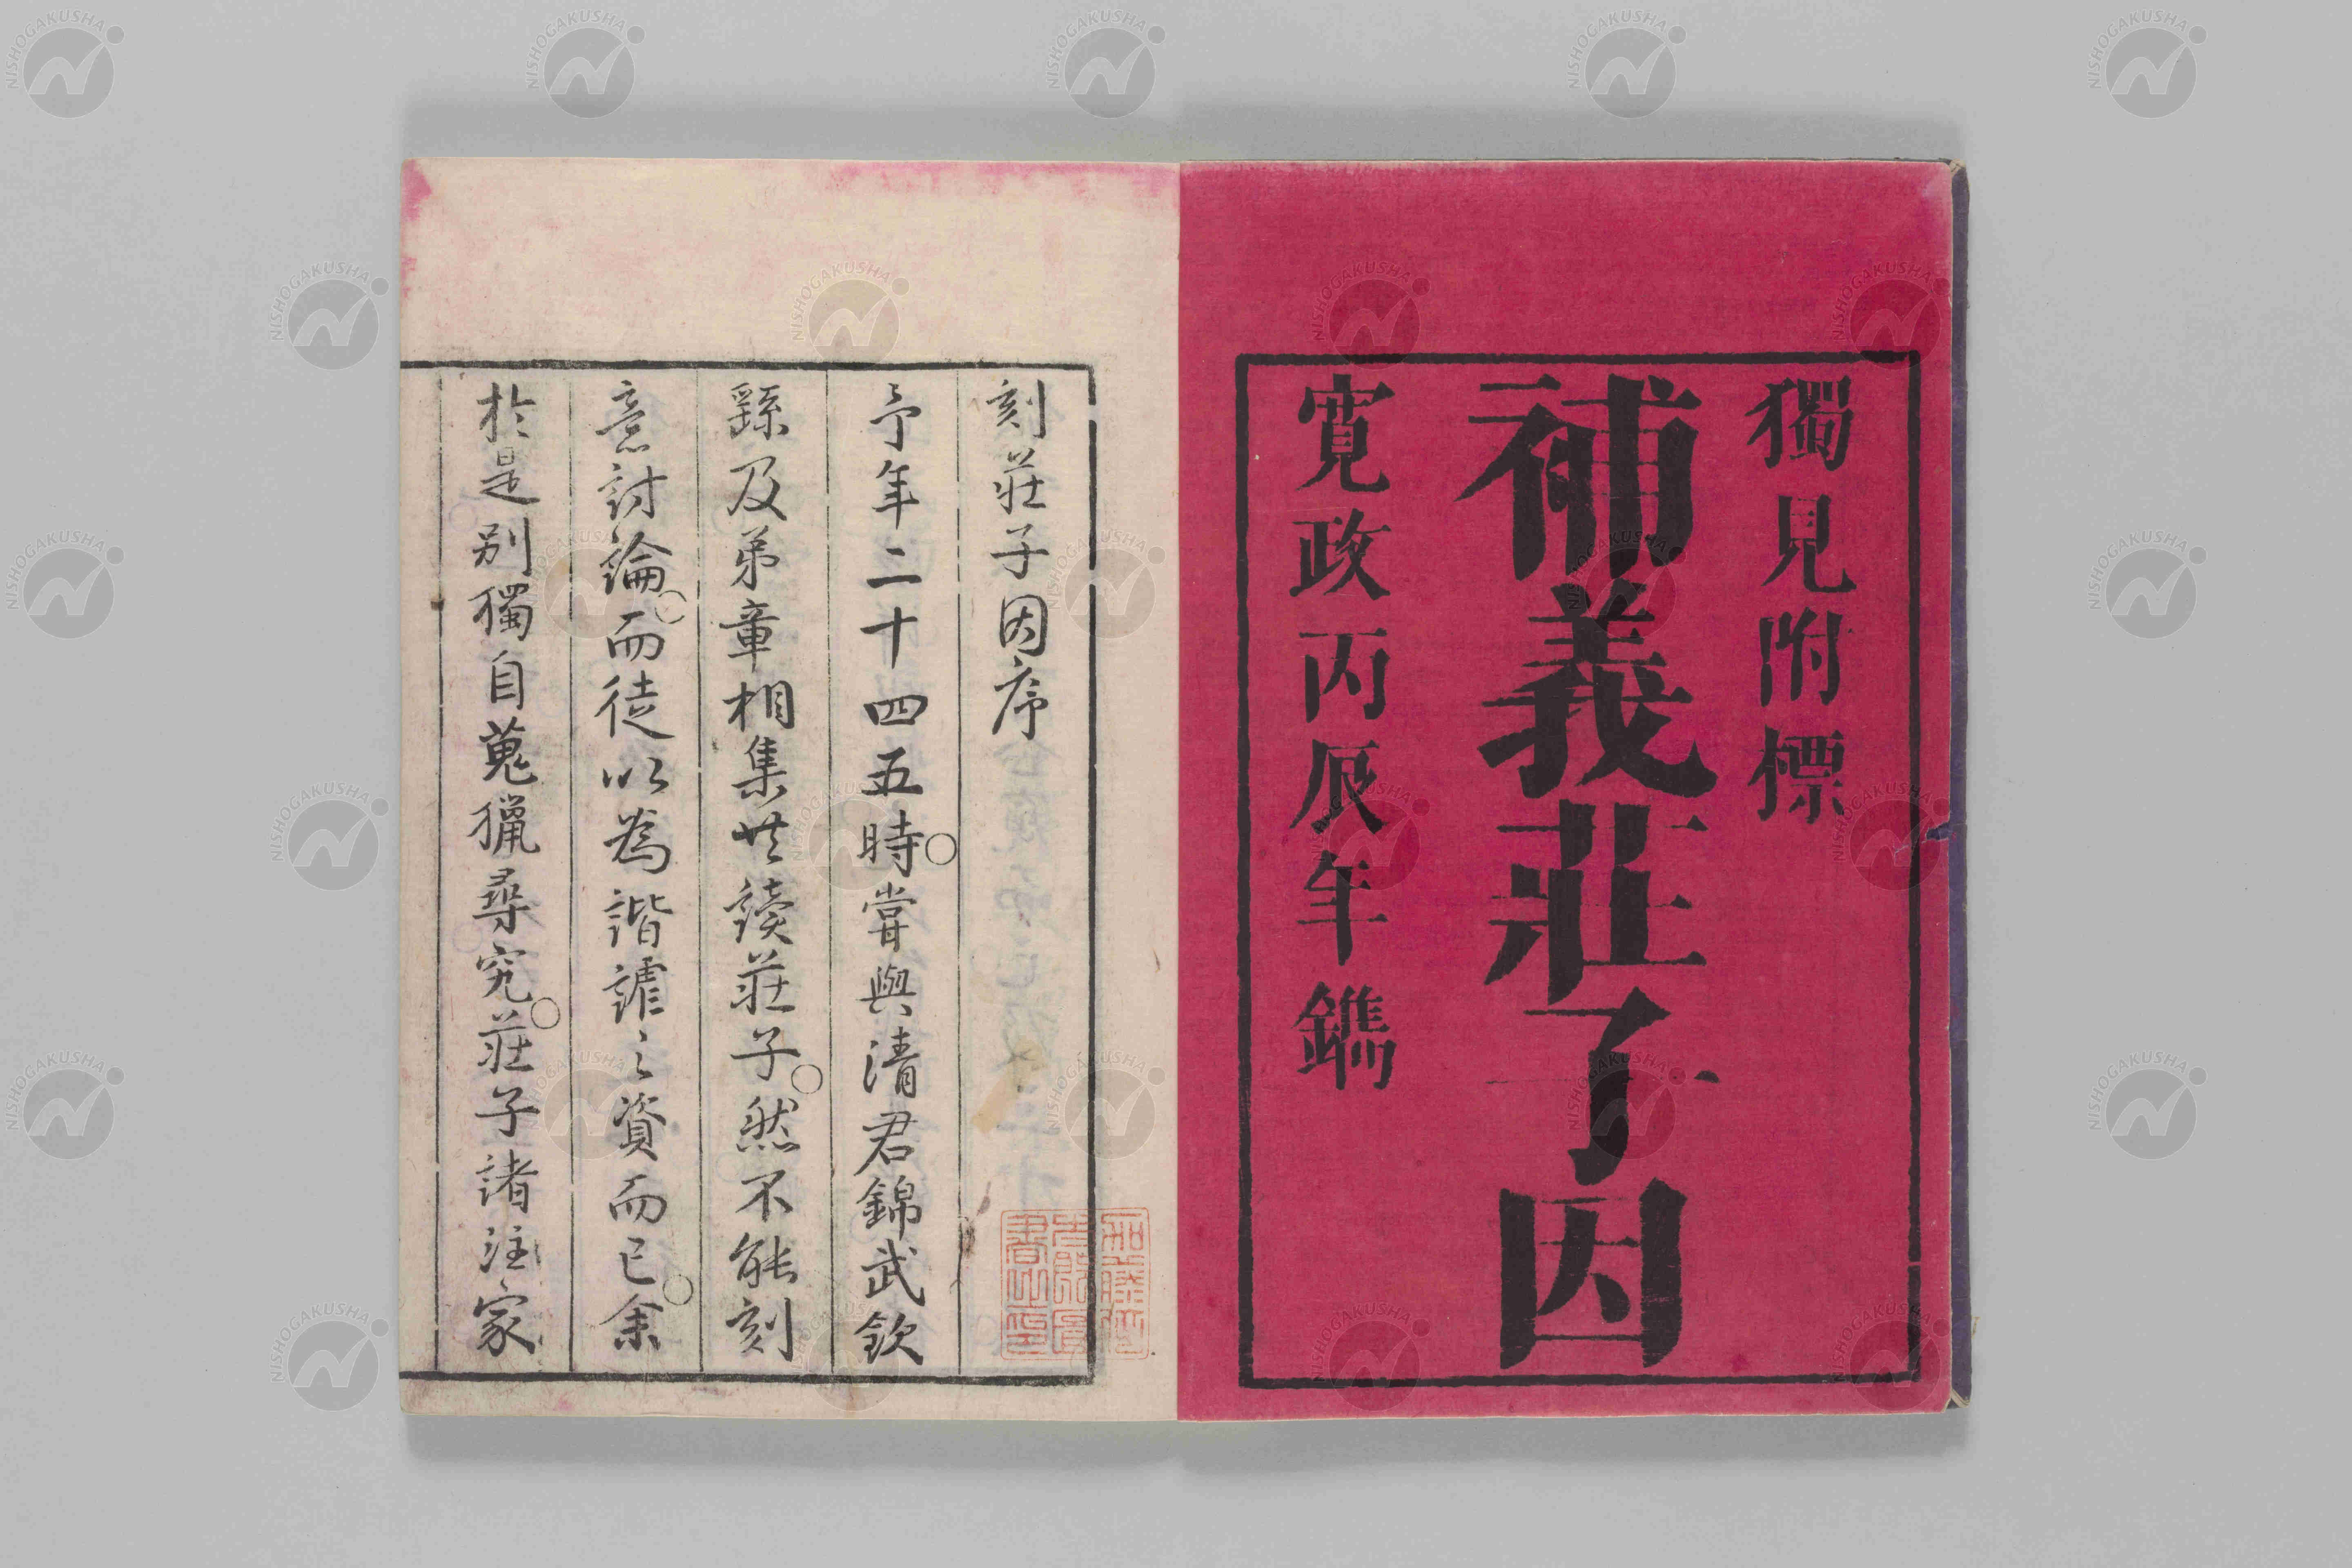 獨見附標
補義莊子因
寛政丙辰年鐫
刻莊子因序
予年二十四五時嘗與清君錦武欽
繇及弟章相集共讀莊子然不能刻
意討論而徒以為諧謔之資而已余
於是別獨自蒐獵尋究莊子諸注家
NISHOGAKUSHA